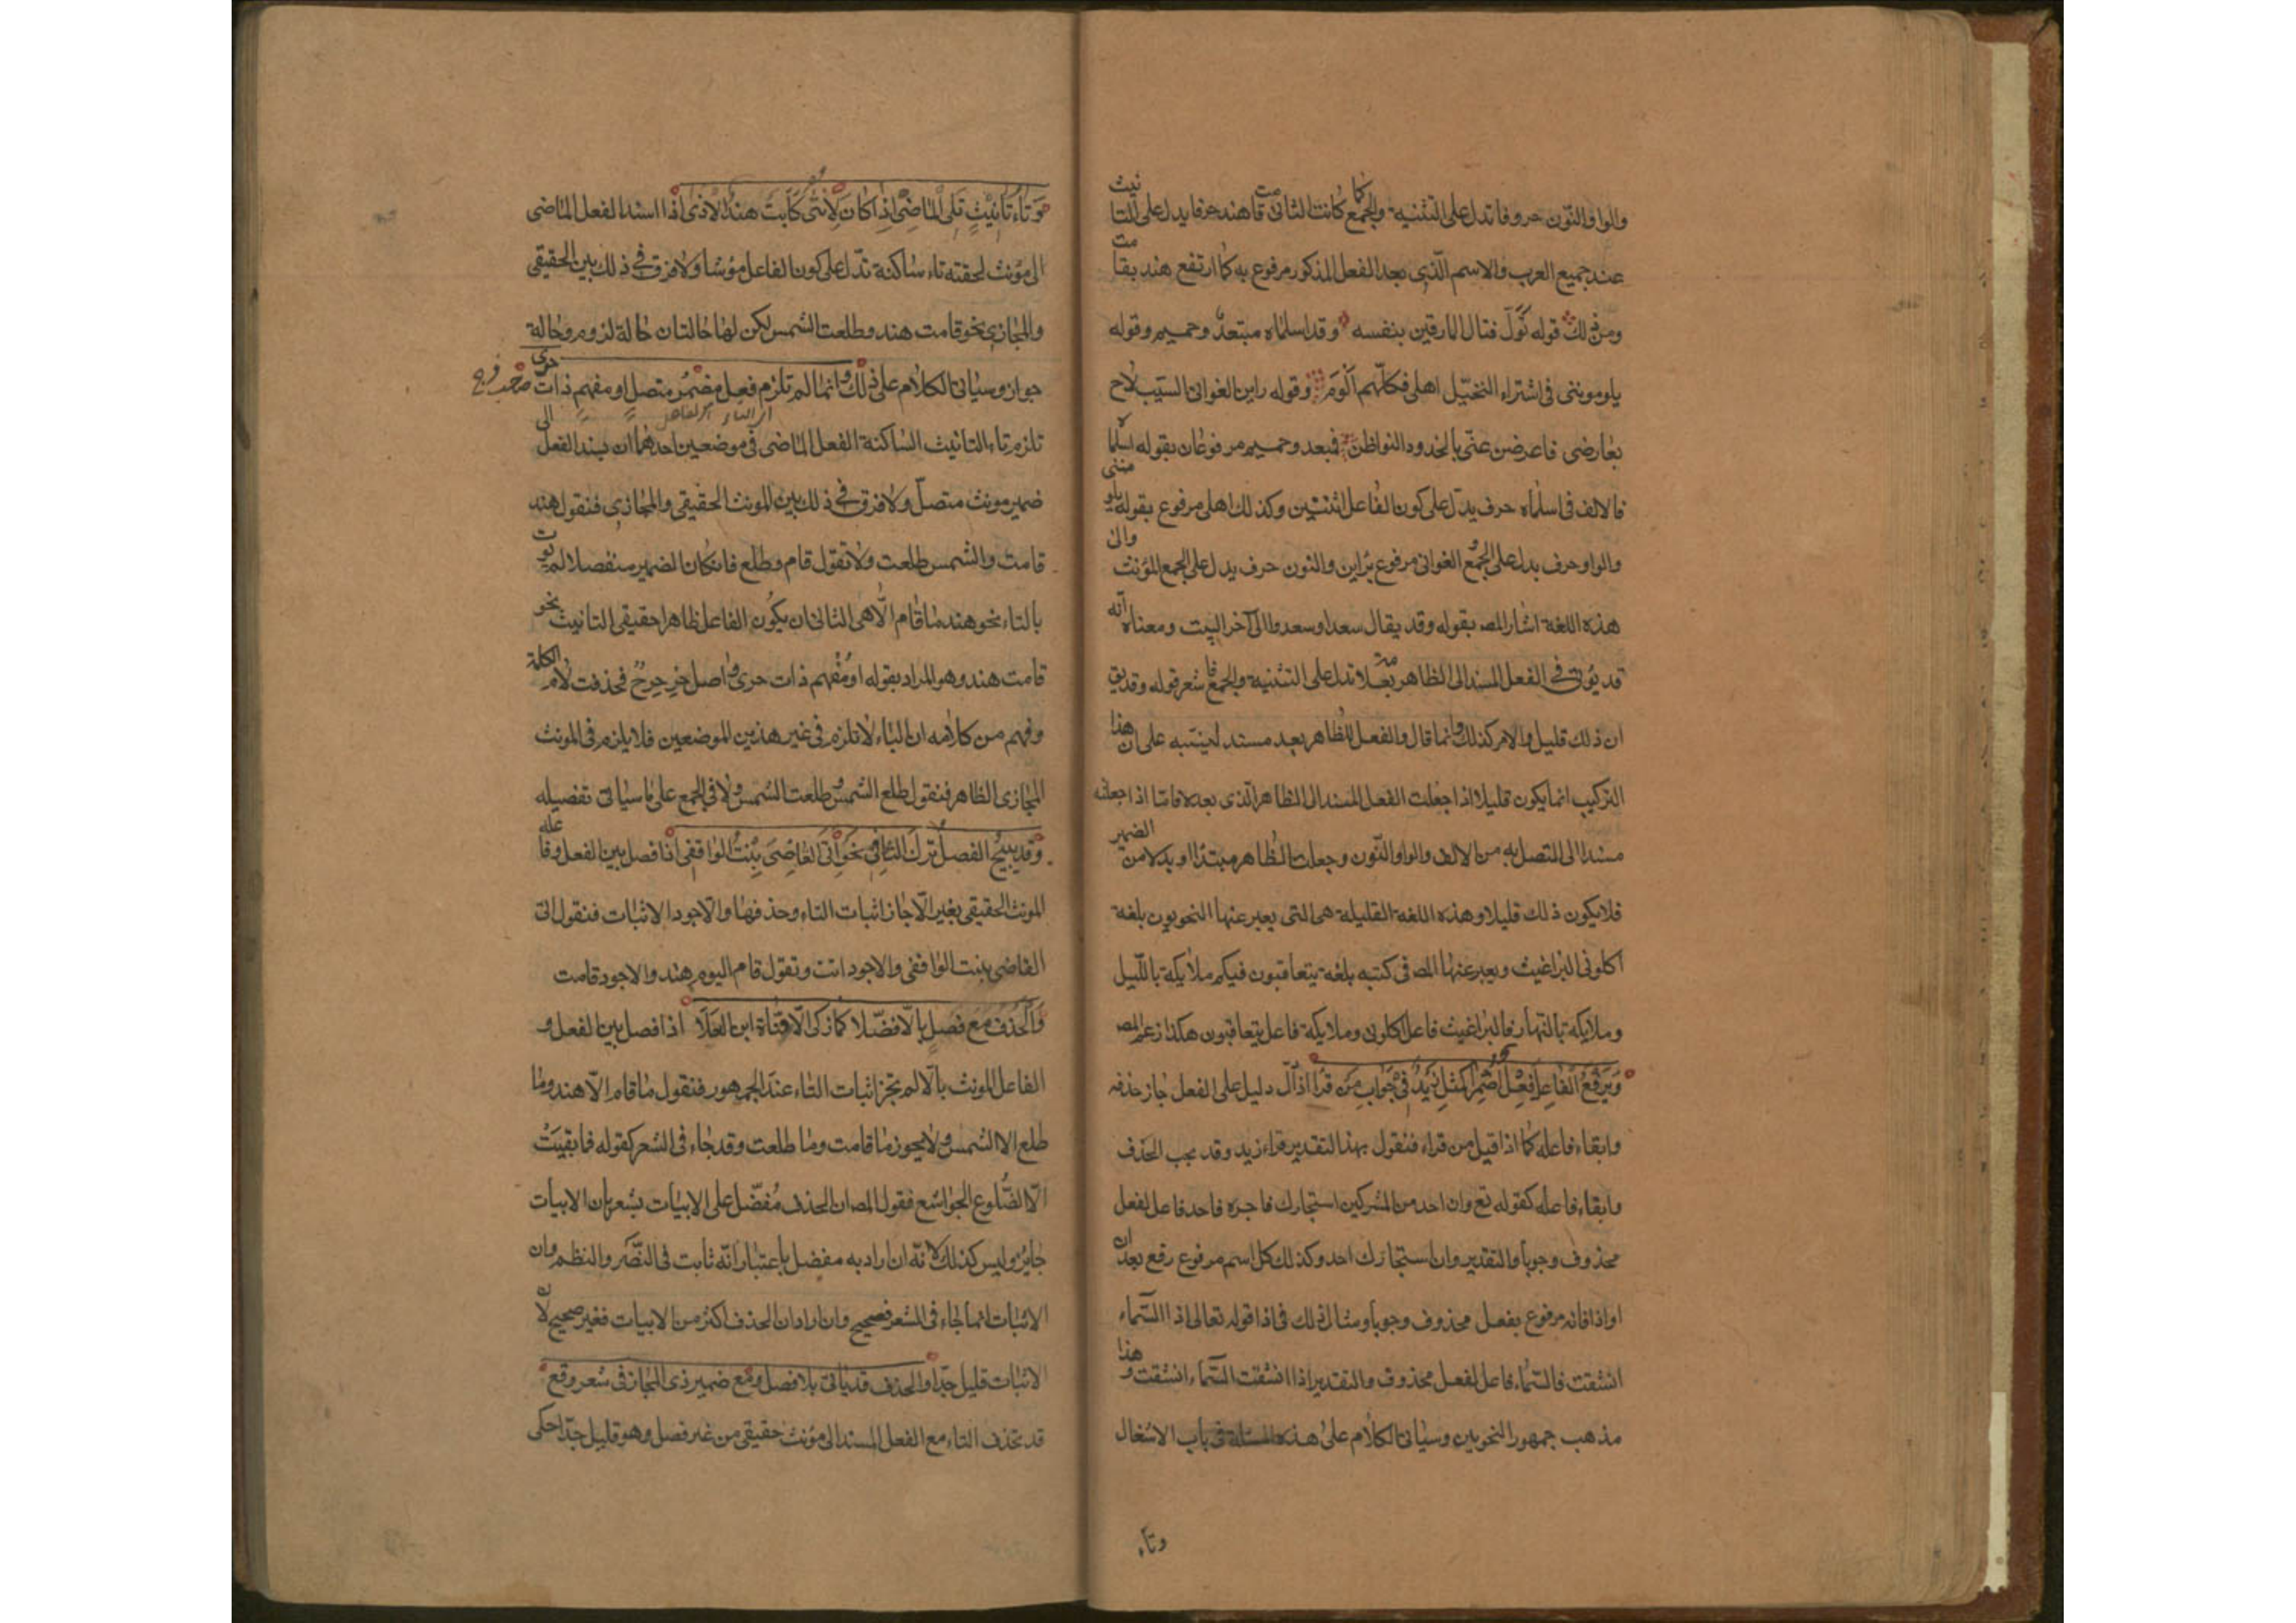 والواو والنّون حروفا تدل على التثنية والجمع كما كانت التاء فى قامت هند حرفا يدل على التانيث
عند جميع العرب والاسم الّذى بعد الفعل المذكور مرفوع به كما ارتفع هند بقامت
ومن ذلك قوله تَوَلّى قتال المارقين بنفسه وقد اسلماه مبتعدٌ وحميم وقوله
يلوموننى فى اشتراء النخيل اهلى فكلّهم اَلْوَمُ وقوله راين الغوانى الشيب لاح
بعارضى فاعرضن عنّى بالخدود النواظر فمبعد وحميم مرفوعان بقوله اسلماه
فالالف فى اسلماه حرف يدلّ على كون الفاعل اثنتين وكذلك اهلى مرفوع بقوله يلوموننى
والواو حرف يدل على الجمع والغوانى مرفوع برأين والنون حرف يدل على الجمع المؤنث والى
هذه اللغة اشار المص بقوله وقد يقال سعدا وسعدوا الى آخر البيت ومعناه انّه
قد يؤتى فى الفعل المسند الى الظاهر بعلامة تدل على التثنية والجمع فاشعر قوله وقد يق
ان ذلك قليل والامر كذلك وانما قال والفعل للظاهر بعد مسند لينبّه على ان هذا
التركيب انما يكون قليلا اذا جعلت الفعل المسند الى الظاهر الّذى بعده فاما اذا جعلته
مسندا الى المتصل به من الالف والواو والنّون وجعلت الظاهر مبتدا او بدلا من الضمير
فلا يكون ذلك قليلا وهذه اللغة القليلة هى التى يعبر عنها النحويون بلغة
اكلونى البراغيث ويعبر عنها المص فى كتبه بلغة يتعاقبون فيكم ملايكة باللّيل
وملايكة بالنهار فالبراغيث فاعل اكلونى وملايكة فاعل يتعاقبون هكذا زعم المص
وَيَرْفَعُ الْفَاعِلَ فِعْلٌ اُضْمِرَا كَمِثْلِ زَيْدٌ فِى جَوَابِ مَن قَرَا اذا دلّ دليل على الفعل جاز حذفه
وابقاء فاعله كما اذا قيل من قراء فتقول بهذا التقدير قراء زيد وقد يجب الحذف
وابقاء فاعله كقوله تع وان احد من المشركين استجارك فاجره فاحد فاعل لفعل
محذوف وجوبا والتقدير وان استجارك احد وكذلك كل اسم مرفوع رقع بعد ان
او اذا فانه مرفوع بفعل محذوف وجوبا ومثال ذلك فى اذا قوله تعالى اذا السّماء
انشقت فالسّماء فاعل لفعل محذوف والتقدير اذا انشقت السّماء انشقت وهذا
مذهب جمهور النحويين وسياتى الكلام على هذه المسئلة فى باب الاشغال
وتاء
وَتَاءُ تَأنِيْثٍ تَلِى الْمَاضِى اِذَا كَانَ لِاُنْثٰى كَاَبَتْ هندُ الاَذٰى اذا اسند الفعل الماضى
الى مؤنث لحقته تاء ساكنة تدّل على كون الفاعل مؤنثا ولا فرق فى ذلك بين الحقيقى
والمجازى نحو قامت هند وطلعت الشمس لكن لها حالتان حالة لزوم وحالة
جواز وسياتى الكلام على ذلك وانّما تلزم فعل مضمر متصل او مفهم ذات حرى
تلزم تاء التانيث الساكنة الفعل الماضى فى موضعين احدهما ان يسند الفعل الى
ضمير مونث متصل ولا فرق فى ذلك بين المونث الحقيقى والمجازى فتقول هند
قامت والشمس طلعت ولا تقول قام وطلع فان كان الضمير منفصلا لم يوت
بالتاء نحو هند ما قام الّا هى الثانى ان يكون الفاعل ظاهرا حقيقى التانيث نحو
قامت هند وهو المراد بقوله او مُفْهِم ذات حرى واصل حِر حِرحٌ فحذفت لام الكلمة
وفهم من كلامه ان التاء لا تلزم فى غير هذين الموضعين فلا يلزم فى المونث
المجازى الظاهر فتقول طلع الشمس وطلعت الشمس ولا فى الجمع على ما سياتى تفصيله
وَقَدْ يُبِيْحُ الفَصْلُ تَرْكَ التَّاءِ فِى نَحْوِ اَتَى القَاضِىَ بِنْتُ الوَاقِفِى اذا فصل بين الفعل وفاعله
المونث الحقيقى بغير الّا جاز اثبات التاء وحذفها والاجود الاثبات فتقول اتى
القاضى بنت الواقفى والاجود اتت وتقول قام اليوم هند والاجود قامت
وَالْحَذْفُ مَعْ فَصْلٍ بِاِلَّا فُضِّلَا كَمَا زَكٰى اِلَّا فَتَاةُ ابنِ العَلَا اذا فصل بين الفعل و
الفاعل المونث بالّا لم يجز اثبات التاء عند الجمهور فتقول ما قام الّا هند وما
طلع الا الشمس ولا يجوز ما قامت وما طلعت وقد جاء فى الشعر كقوله فما بقيتْ
الّا الضُّلوع الجواشع فقول المص ان الحذف مُفضّل على الاثبات يشعر بان الاثبات
جايز وليس كذلك لانّه ان اراد به مفضل باعتبار انّه ثابت فى النّثر والنظم وان
الاثبات انما جاء فى الشعر فصحيح وان اراد ان الحذف اكثر من الاثبات فغير صحيح لان
الاثبات قليل جدّا والحذف قد ياتى بلا فصل ومع ضمير ذى المجاز فى شعر وقع
قد تحذف التاء مع الفعل المسند الى مؤنث حقيقى من غير فصل وهو قليل جدّا حكى